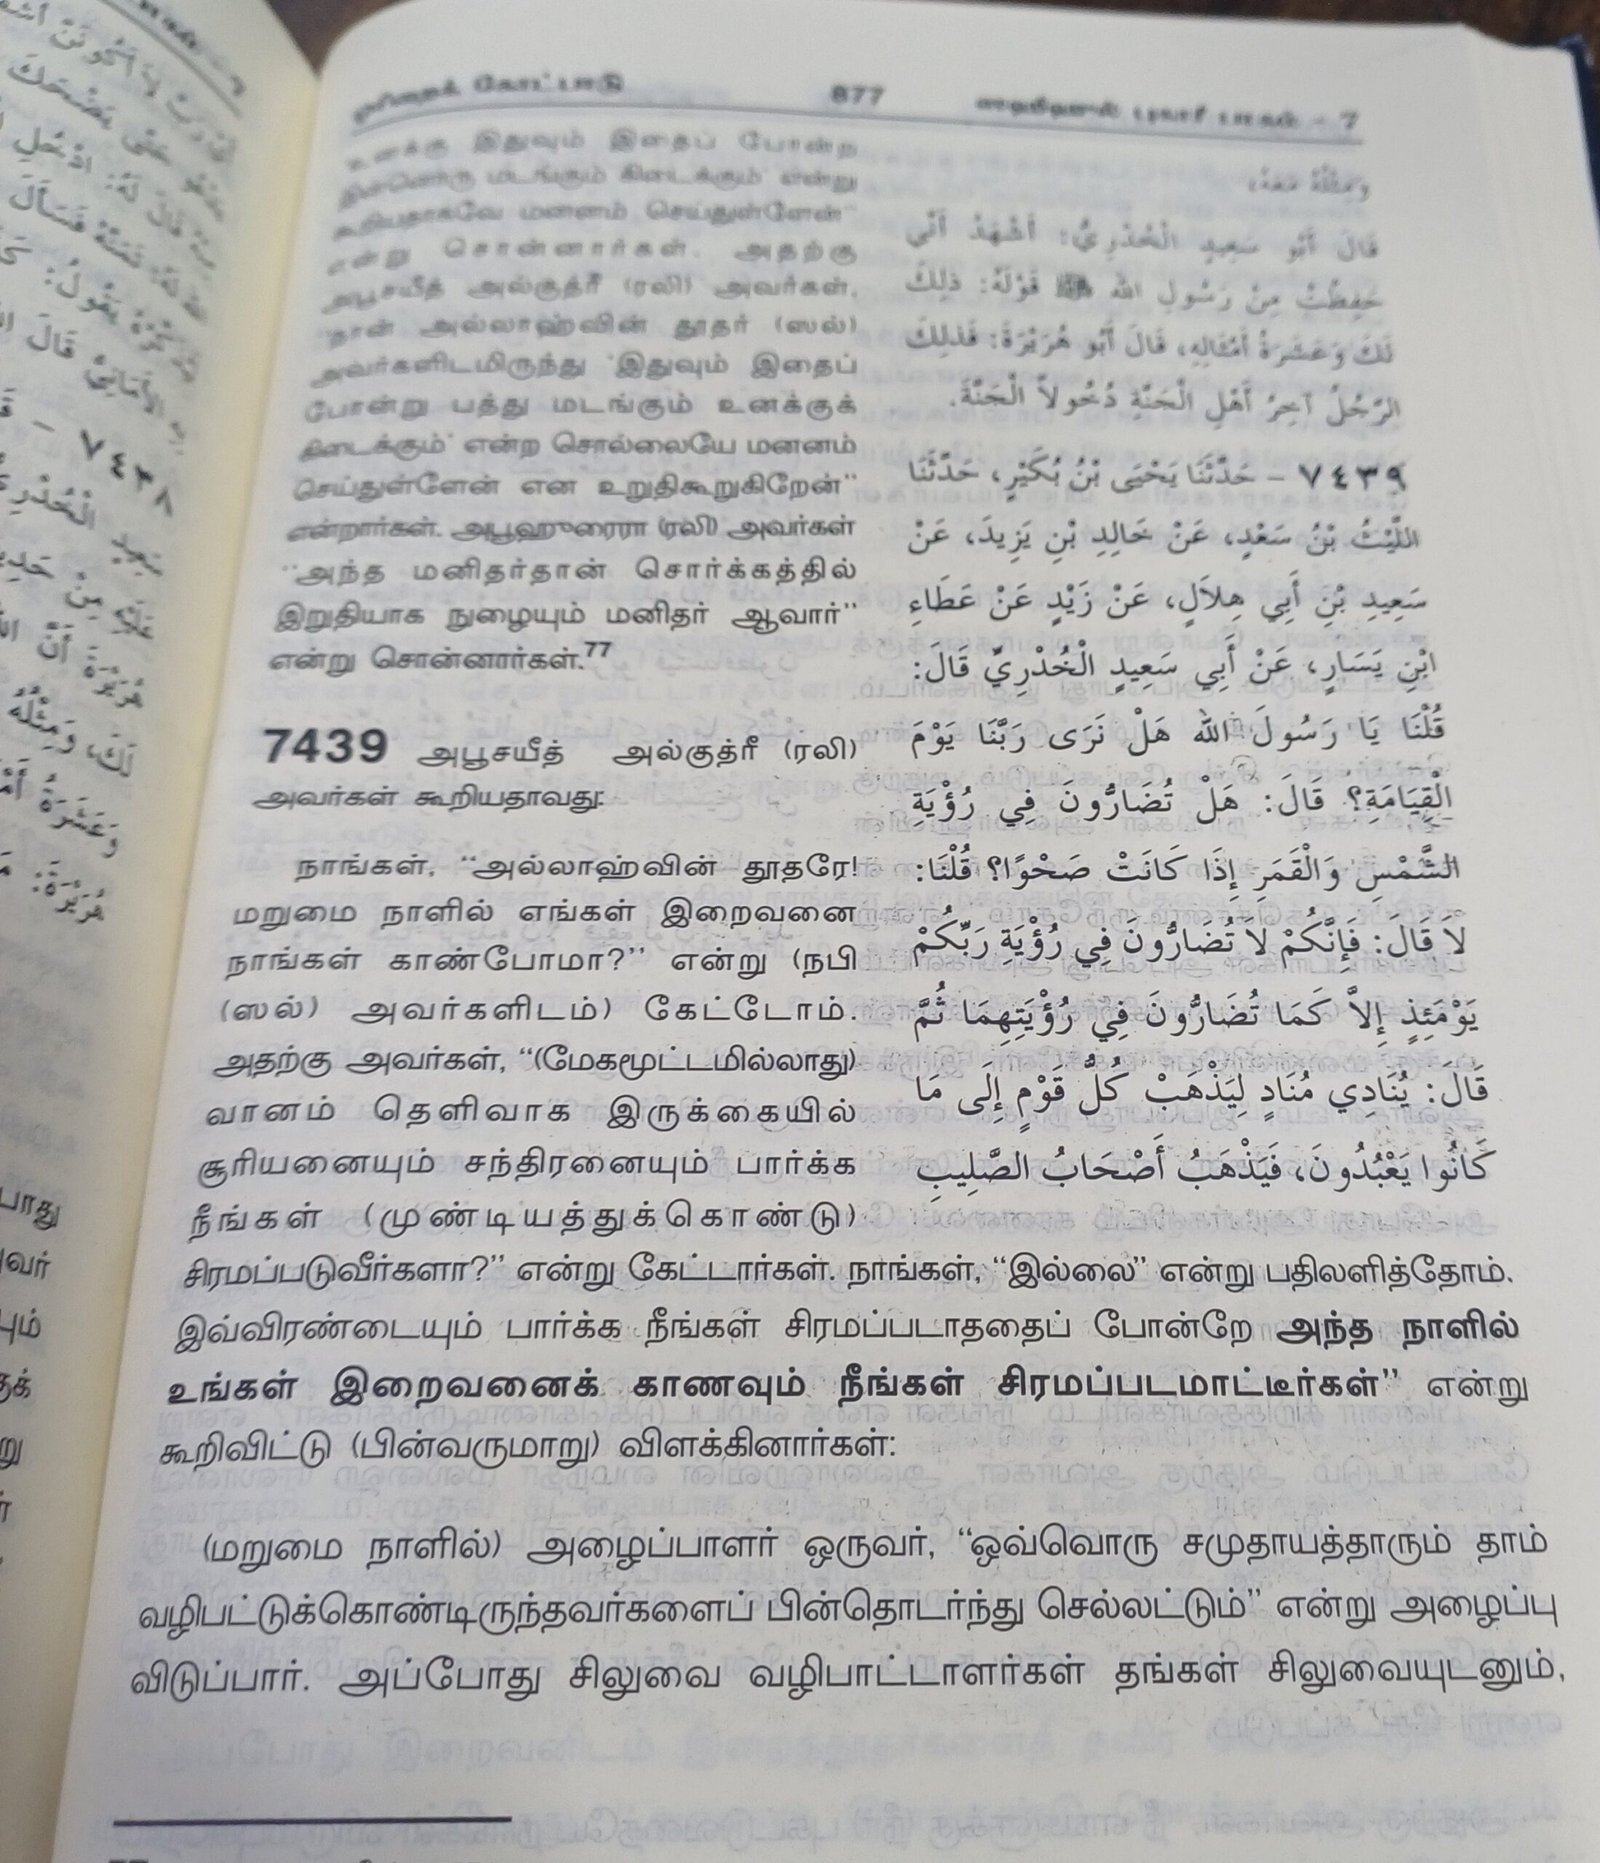 ஓரிறைக் கோட்பாடு 877 ஸஹீஹுல் புகாரீ பாகம் - 7
உனக்கு இதுவும் இதைப் போன்ற
இன்னொரு மடங்கும் கிடைக்கும்' என்று
கூறியதாகவே மனனம் செய்துள்ளேன்"
என்று சொன்னார்கள். அதற்கு
அபூசயீத் அல்குத்ரீ (ரலி) அவர்கள்,
"நான் அல்லாஹ்வின் தூதர் (ஸல்)
அவர்களிடமிருந்து 'இதுவும் இதைப்
போன்று பத்து மடங்கும் உனக்குக்
கிடைக்கும்' என்ற சொல்லையே மனனம்
செய்துள்ளேன் என உறுதிகூறுகிறேன்"
என்றார்கள். அபூஹுரைரா (ரலி) அவர்கள்
"அந்த மனிதர்தான் சொர்க்கத்தில்
இறுதியாக நுழையும் மனிதர் ஆவார்"
என்று சொன்னார்கள்.77
7439 அபூசயீத் அல்குத்ரீ (ரலி)
அவர்கள் கூறியதாவது:
நாங்கள், "அல்லாஹ்வின் தூதரே!
மறுமை நாளில் எங்கள் இறைவனை
நாங்கள் காண்போமா?" என்று (நபி
(ஸல்) அவர்களிடம்) கேட்டோம்.
அதற்கு அவர்கள், "(மேகமூட்டமில்லாது)
வானம் தெளிவாக இருக்கையில்
சூரியனையும் சந்திரனையும் பார்க்க
நீங்கள் (முண்டியத்துக்கொண்டு)
وَمِثْلُهُ مَعَهُ،
قَالَ أَبُو سَعِيدٍ الْخُدْرِيُّ: أَشْهَدُ أَنِّي
حَفِظْتُ مِنْ رَسُولِ اللهِ ﷺ قَوْلَهُ: ذٰلِكَ
لَكَ وَعَشَرَةُ أَمْثَالِهِ، قَالَ أَبُو هُرَيْرَةَ: فَذٰلِكَ
الرَّجُلُ آخِرُ أَهْلِ الْجَنَّةِ دُخُولاً الْجَنَّةَ.
٧٤٣٩ - حَدَّثَنَا يَحْيَى بْنُ بُكَيْرٍ، حَدَّثَنَا
اللَّيْثُ بْنُ سَعْدٍ، عَنْ خَالِدِ بْنِ يَزِيدَ، عَنْ
سَعِيدِ بْنِ أَبِي هِلاَلٍ، عَنْ زَيْدٍ عَنْ عَطَاءِ
ابْنِ يَسَارٍ، عَنْ أَبِي سَعِيدٍ الْخُدْرِيِّ قَالَ:
قُلْنَا يَا رَسُولَ اللهِ هَلْ نَرَى رَبَّنَا يَوْمَ
الْقِيَامَةِ؟ قَالَ: هَلْ تُضَارُّونَ فِي رُؤْيَةِ
الشَّمْسِ وَالْقَمَرِ إِذَا كَانَتْ صَحْوًا؟ قُلْنَا:
لاَ قَالَ: فَإِنَّكُمْ لاَ تُضَارُّونَ فِي رُؤْيَةِ رَبِّكُمْ
يَوْمَئِذٍ إِلاَّ كَمَا تُضَارُّونَ فِي رُؤْيَتِهِمَا ثُمَّ
قَالَ: يُنَادِي مُنَادٍ لِيَذْهَبْ كُلُّ قَوْمٍ إِلَى مَا
كَانُوا يَعْبُدُونَ، فَيَذْهَبُ أَصْحَابُ الصَّلِيبِ
சிரமப்படுவீர்களா?" என்று கேட்டார்கள். நாங்கள், "இல்லை" என்று பதிலளித்தோம்.
இவ்விரண்டையும் பார்க்க நீங்கள் சிரமப்படாததைப் போன்றே அந்த நாளில்
உங்கள் இறைவனைக் காணவும் நீங்கள் சிரமப்படமாட்டீர்கள்" என்று
கூறிவிட்டு (பின்வருமாறு) விளக்கினார்கள்:
(மறுமை நாளில்) அழைப்பாளர் ஒருவர், "ஒவ்வொரு சமுதாயத்தாரும் தாம்
வழிபட்டுக்கொண்டிருந்தவர்களைப் பின்தொடர்ந்து செல்லட்டும்" என்று அழைப்பு
விடுப்பார். அப்போது சிலுவை வழிபாட்டாளர்கள் தங்கள் சிலுவையுடனும்,